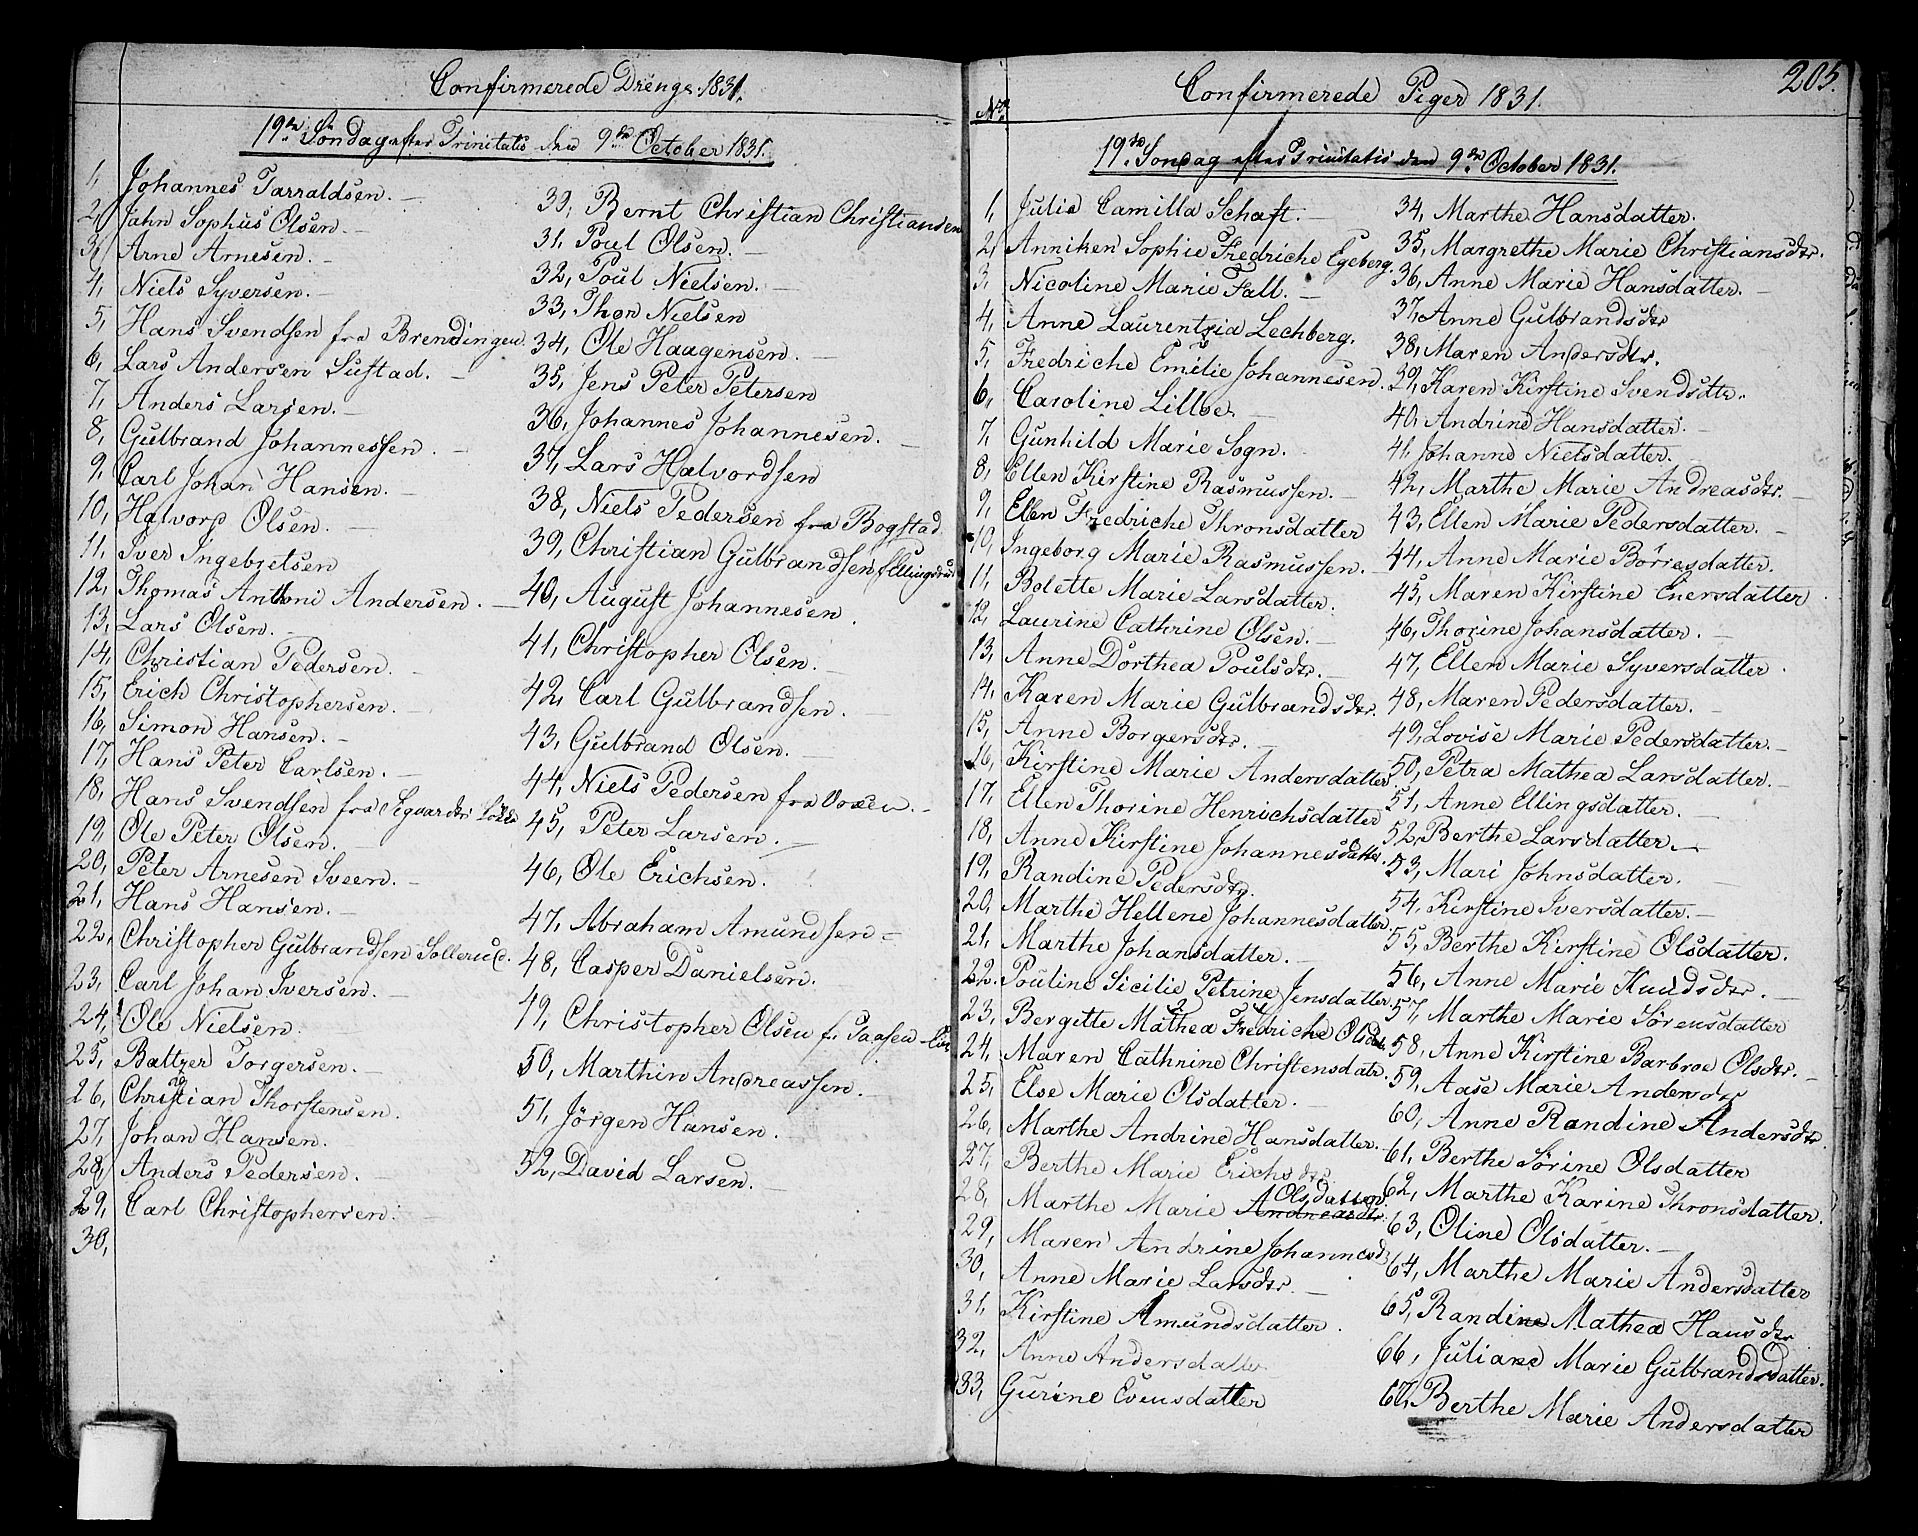 Confirmerede Drenge 1831.
19de Söndag efter Trinitatis den 9de October 1831.
1, Johannes Tarraldsen.
2, Jahn Sophus Olsen.
3, Arne Arnesen.
4, Niels Syversen.
5, Hans Svendsen fra Brendingen.
6, Lars Andersen Sustad.
7, Anders Larsen.
8, Gulbrand Johannessen.
9, Carl Johan Hansen.
10, Halvord Olsen.
11, Iver Ingebretsen
12, Thomas Anthoni Andersen.
13, Lars Olsen.
14, Christian Pedersen.
15, Erich Christophersen.
16, Simon Hansen.
17, Hans Peter Carlsen.
18, Hans Svendsen fra
19, Ole Peter Olsen.
20, Peter Arnesen Sveen.
21, Hans Hansen.
22, Christopher Gulbrandsen Sollerud.
23, Carl Johan Iversen.
24, Ole Nielsen.
25, Baltzer Torgersen.
26, Christian Thorstensen.
27, Johan Hansen.
28, Anders Pedersen.
29, Carl Christophersen.
30,
30, Bernt Christian Christiansen
31, Poul Olsen.
32, Poul Nielsen.
33, Thor Nielsen
34, Ole Haagensen.
35, Jens Peter Petersen
36, Johannes Johannesen.
37, Lars Halvordsen
38, Niels Pedersen fra Bogstad
39, Christian Gulbrandsen, f Ellingsrud
40, August Johannesen.
41, Christopher Olsen.
42, Carl Gulbrandsen.
43, Gulbrand Olsen.
44, Niels Pedersen fra Voxen.
45, Peter Larsen.
46, Ole Erichsen.
47, Abraham Amundsen
48, Casper Danielsen.
49, Christopher Olsen f.
50, Marthin Andreassen.
51, Jörgen Hansen.
52, David Larsen.
205.
Confirmerede Piger 1831.
No.
19de Sondag efter Trinitatis den 9de October 1831.
1, Julie Camilla Schaft.
2, Anniken Sophie Fredriche Egeberg.
3, Nicoline Marie Fall.
4, Anne Laurentzia Lechberg.
5, Fredriche Emilie Johannesen.
6, Caroline Lilloe.
7, Gunhild Marie Sogn.
8, Ellen Kirstine Rasmussen.
9, Ellen Fredriche Thronsdatter
10, Ingeborg Marie Rasmussen.
11, Bolette Marie Larsdatter.
12, Laurine Cathrine Olsen.
13, Anne Dorthea Poulsdtr.
14, Karen Marie Gulbrandsdtr.
15, Anne Borgersdtr.
16, Kirstine Marie Andersdatter
17, Ellen Thorine Henrichsdatter
18, Anne Kirstine Johannesdatter.
19, Randine Pedersdtr.
20, Marthe Hellene Johannesdatter.
21, Marthe Johansdatter.
22, Pouline Sicilie Petrine Jensdatter.
23, Bergitte Mathea Fredriche Olsdatr.
24, Maren Cathrine Christensdatr.
25, Else Marie Olsdatter.
26, Marthe Andrine Hansdatter.
27, Berthe Marie Erichsdtr.
28, Marthe Marie Andreasdtr. Olsdatter
29, Maren Andrine Johannesd
30, Anne Marie Larsdtr.
31, Kirstine Amundsdatter.
32, Anne Andersdatter
33, Gurine Evensdatter
34, Marthe Hansdatter.
35, Margrethe Marie Christiansdtr.
36, Anne Marie Hansdatter.
37, Anne Gulbrandsdtr
38, Maren Andersdtr.
39, Karen Kirstine Svendsdtr.
40, Andrine Hansdatter.
41, Johanne Nielsdatter.
42, Marthe Marie Andreasdtr.
43, Ellen Marie Pedersdatter.
44, Anne Marie Börresdatter.
45, Maren Kirstine Enersdatter.
46, Thorine Johansdatter.
47, Ellen Marie Syversdatter.
48, Maren Pedersdatter.
49, Lovise Marie Pedersdatter.
50, Petra Mathea Larsdatter.
51, Anne Ellingsdatter.
52, Berthe Larsdatter.
53, Mari Johnsdatter.
54, Kirstine Iversdatter.
55, Berthe Kirstine Olsdatter.
56, Anne Marie Knudsdtr.
57, Marthe Marie Sörensdatter
58, Anne Kirstine Barbroe Olsdtr.
59, Aase Marie Andersdtr
60, Anne Randine Andersdtr
61, Berthe Sörine Olsdatter
62, Marthe Karine Thronsdatter.
63, Oline Olsdatter.
64, Marthe Marie Andersdatter
65, Randine Mathea Hansdtr
66, Juliane Marie Gulbrandsdatter.
67, Berthe Marie Andersdatter